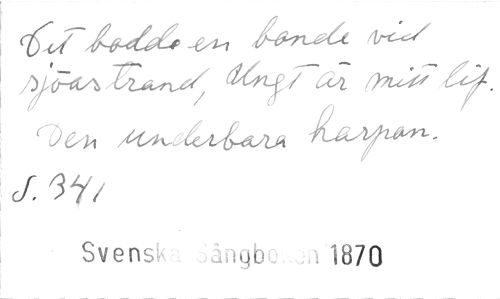 Det bodde en bonde vid
sjöastrand, Ungt är mitt lif.
Den underbara harpan.
S. 341
Svenska Sångboken 1870